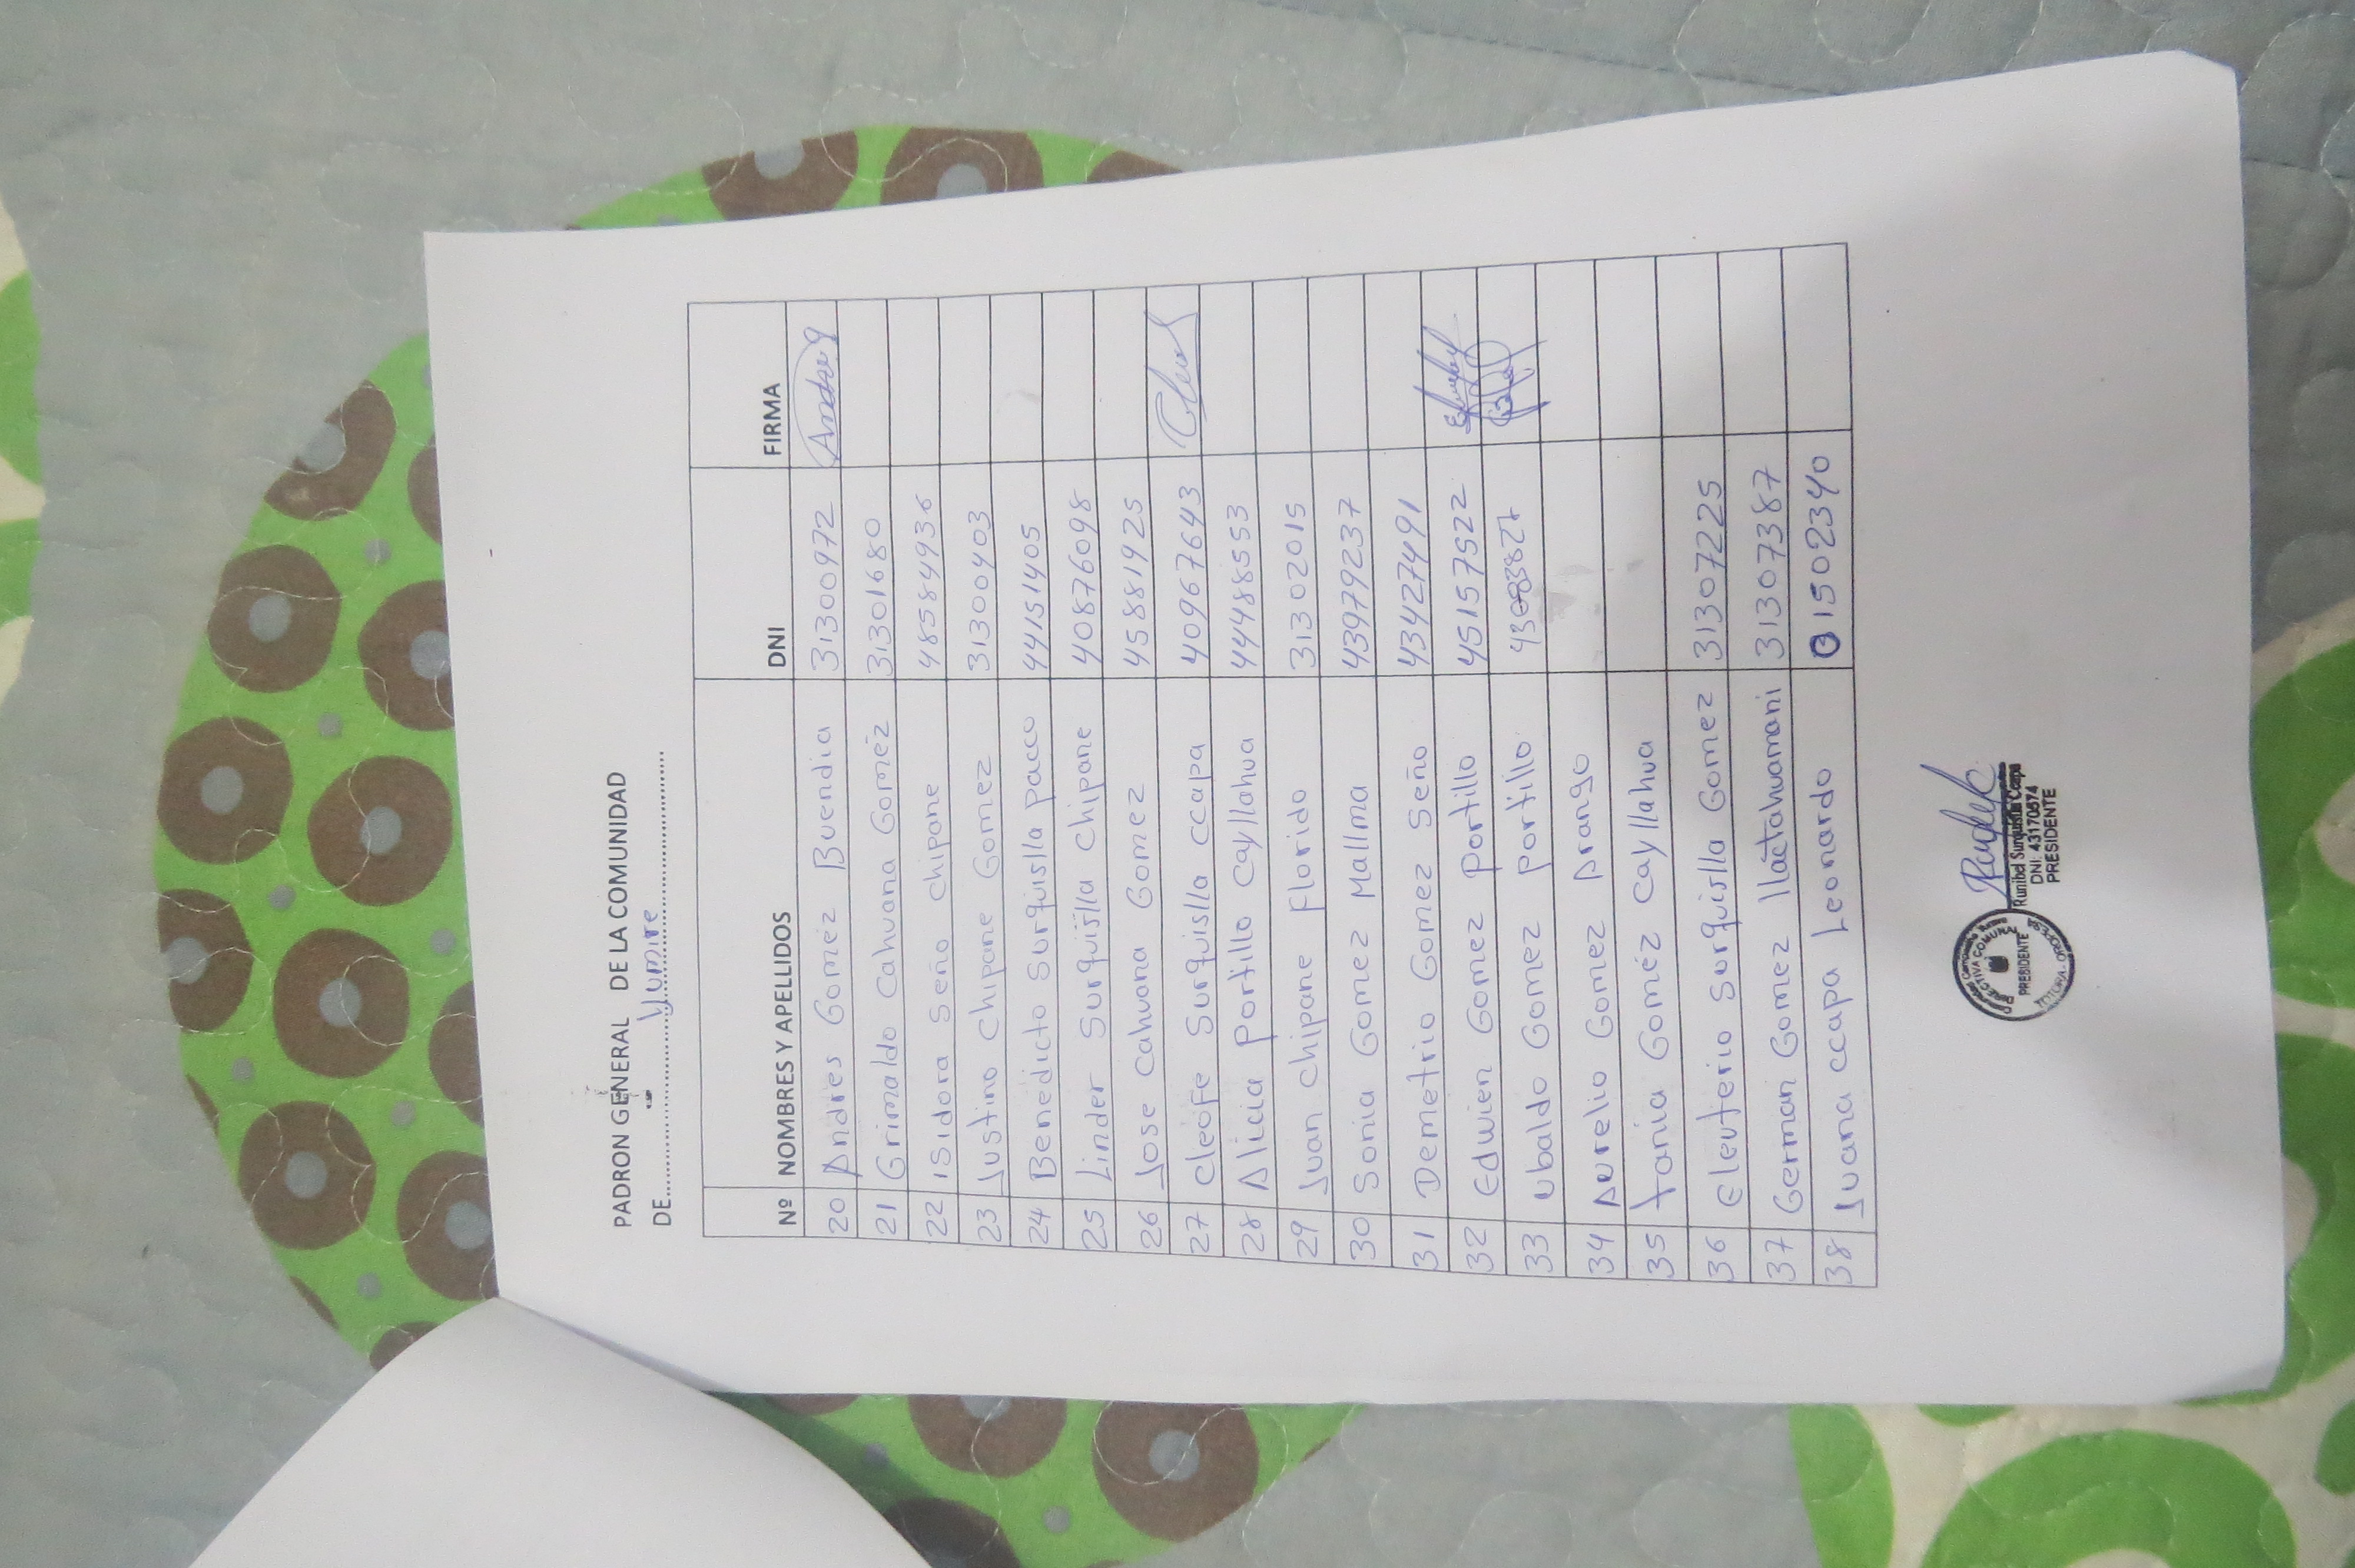 PADRON GENERAL DE LA COMUNIDAD
DE.......Yumire.......
Nº NOMBRES Y APELLIDOS DNI FIRMA
20 Andres Gomez Buendia 31300972 Andres g
21 Grimaldo Cahuana Gomez 31301680
22 Isidora Seño chipane 48584936
23 Justino Chipane Gomez 31300403
24 Benedicto Surquislla pacco 44151405
25 Linder Surquislla chipane 40876098
26 Jose cahuana Gomez 45881925
27 Cleofe Surquislla ccapa 40967643
28 Alicia portillo Cayllahua 44488553
29 Juan chipane Florido 31302015
30 Sonia Gomez Mallma 43979237
31 Demetrio Gomez Seño 43427491
32 Edwien Gomez portillo 45157522
33 Ubaldo Gomez portillo
34 Aurelio Gomez Arango
35 Tania Gomez Cayllahua
36 Eleuterio Surquislla Gomez 31307225
37 German Gomez llactahuamani 31307387
38 Juana ccapa Leonardo 01502340
DIRECTIVA COMUNAL
PRESIDENTE
Runibel Surquislla Ccapa
DNI: 43170674
PRESIDENTE